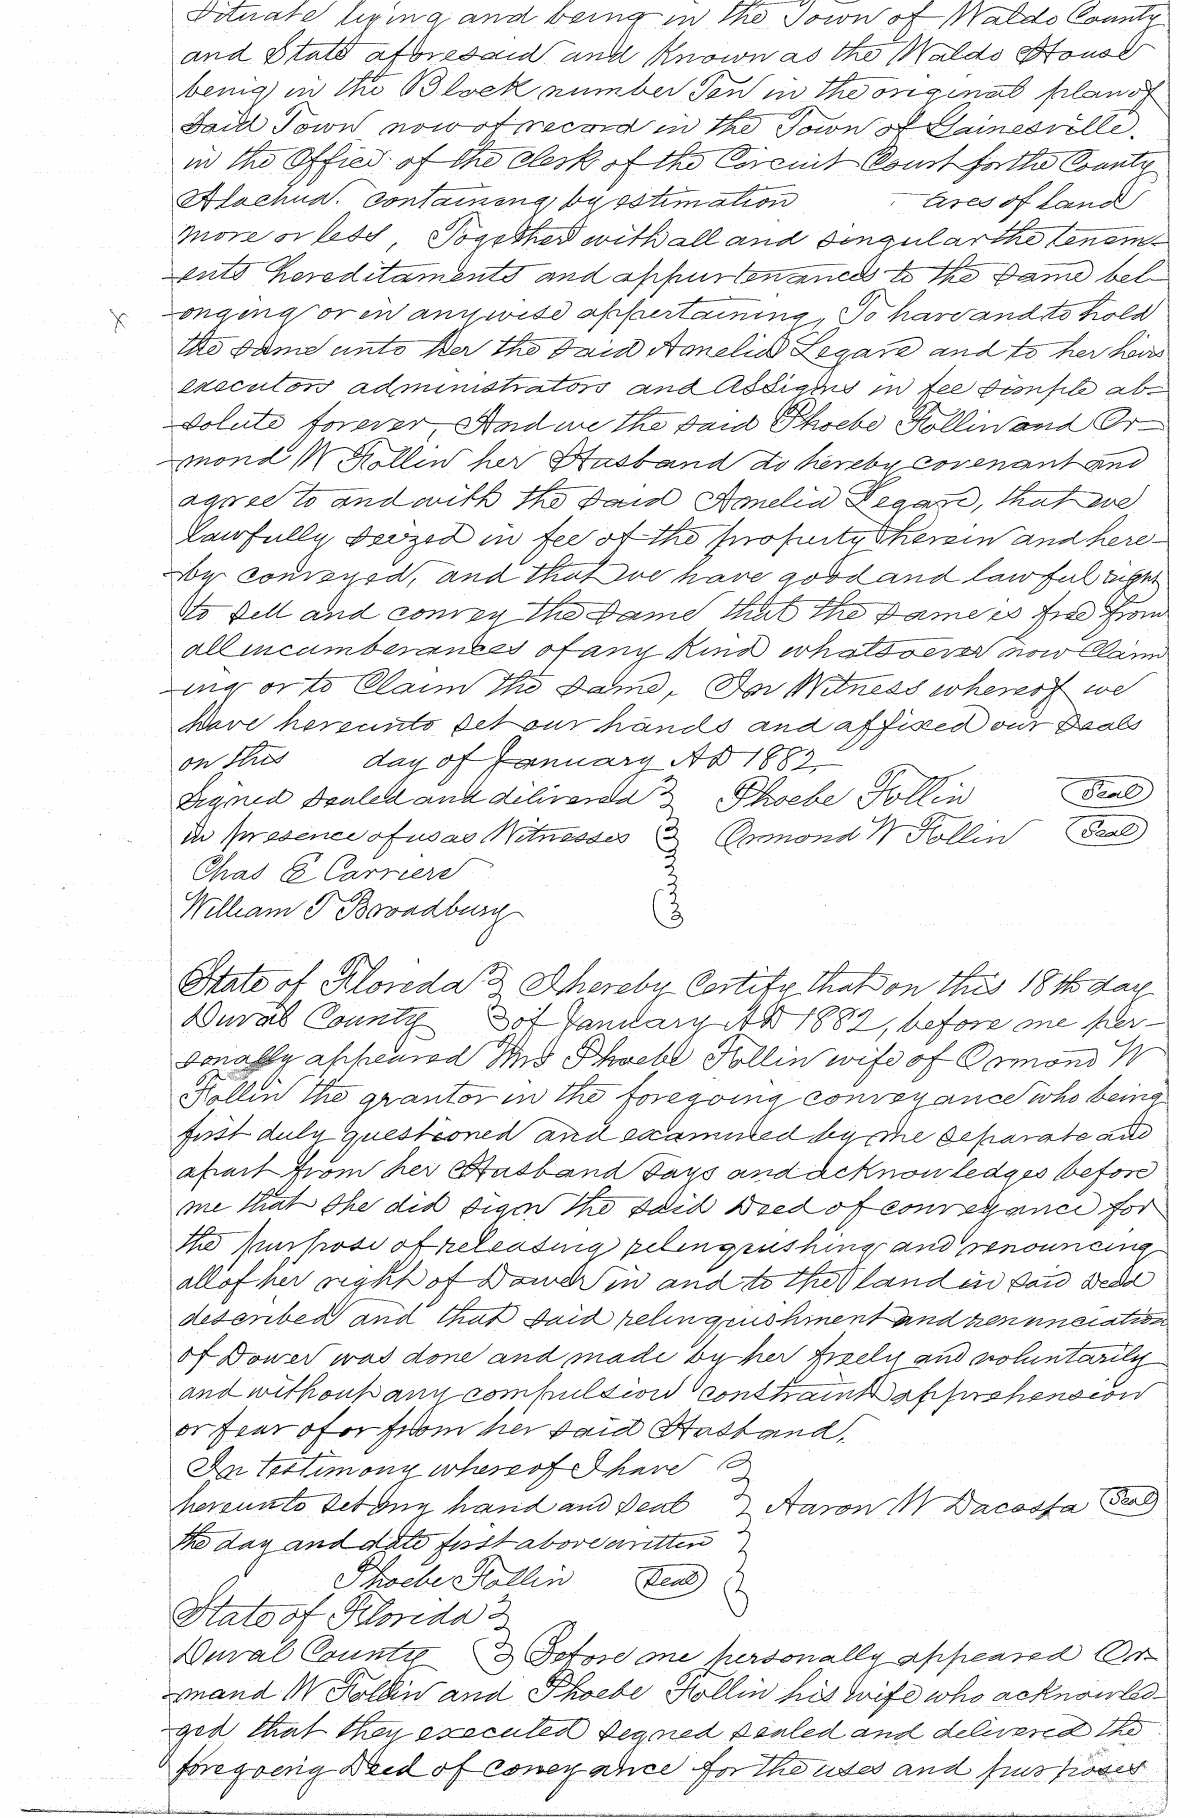 Situate lying and being in the Town of Waldo County
and State aforesaid and Known as the Waldo House
being in the Block number Ten in the original plan of
Said Town now of record in the Town of Gainesville.
in the Office of the Clerk of the Circuit Court for the County
Alachua. containing by estimation acres of land
more or less, Together with all and singular the tenem-
ents hereditaments and appurtenances to the same bel-
x onging or in anywise appertaining, To have and to hold
the same unto her the said Amelia Legare and to her heirs
executors administrators and Assigns in fee simple ab-
solute forever, And we the said Phoebe Follin and Or-
mond W Follin her Husband do hereby covenant and
agree to and with the said Amelia Legare, that we
lawfully seized in fee of the property therein and here-
by conveyed, and that we have good and lawful right
to sell and convey the same that the same is free from
all incumberances of any Kind whatsoever now Claim
ing or to Claim the same, In Witness whereof we
have hereunto set our hands and affixed our Seals
on this day of January AD 1882
Signed sealed and delivered } Phoebe Follin Seal
in presence of us as Witnesses } Ormond W Follin Seal
Chas E Carriere
William T Broadbury
State of Floreda } I hereby Certify that on this 18th day
Duval County } of January AD 1882, before me per-
sonally appeared Mrs Phoebe Follin wife of Ormond W
Follin the grantor in the foregoing conveyance who being
first duly questioned and examined by me separate and
apart from her Husband says and acknowledges before
me that she did sign the said Deed of conveyance for
the purpose of releasing relinquishing and renouncing
all of her right of Dower in and to the land in said Deed
described and that said relinquishment and renunciation
of Dower was done and made by her freely and voluntarily
and without any compulsion constraint apprehension
or fear of or from her said Husband.
In testimony whereof I have }
hereunto set my hand and Seal } Aaron W Dacosta Seal
the day and date first above written
Phoebe Follin Seal
State of Florida }
Duval County } Before me personally appeared Or-
mand W Follin and Phoebe Follin his wife who acknowled-
ged that they executed segned sealed and delivered the
foregoeing Deed of coneyance for the uses and purposes